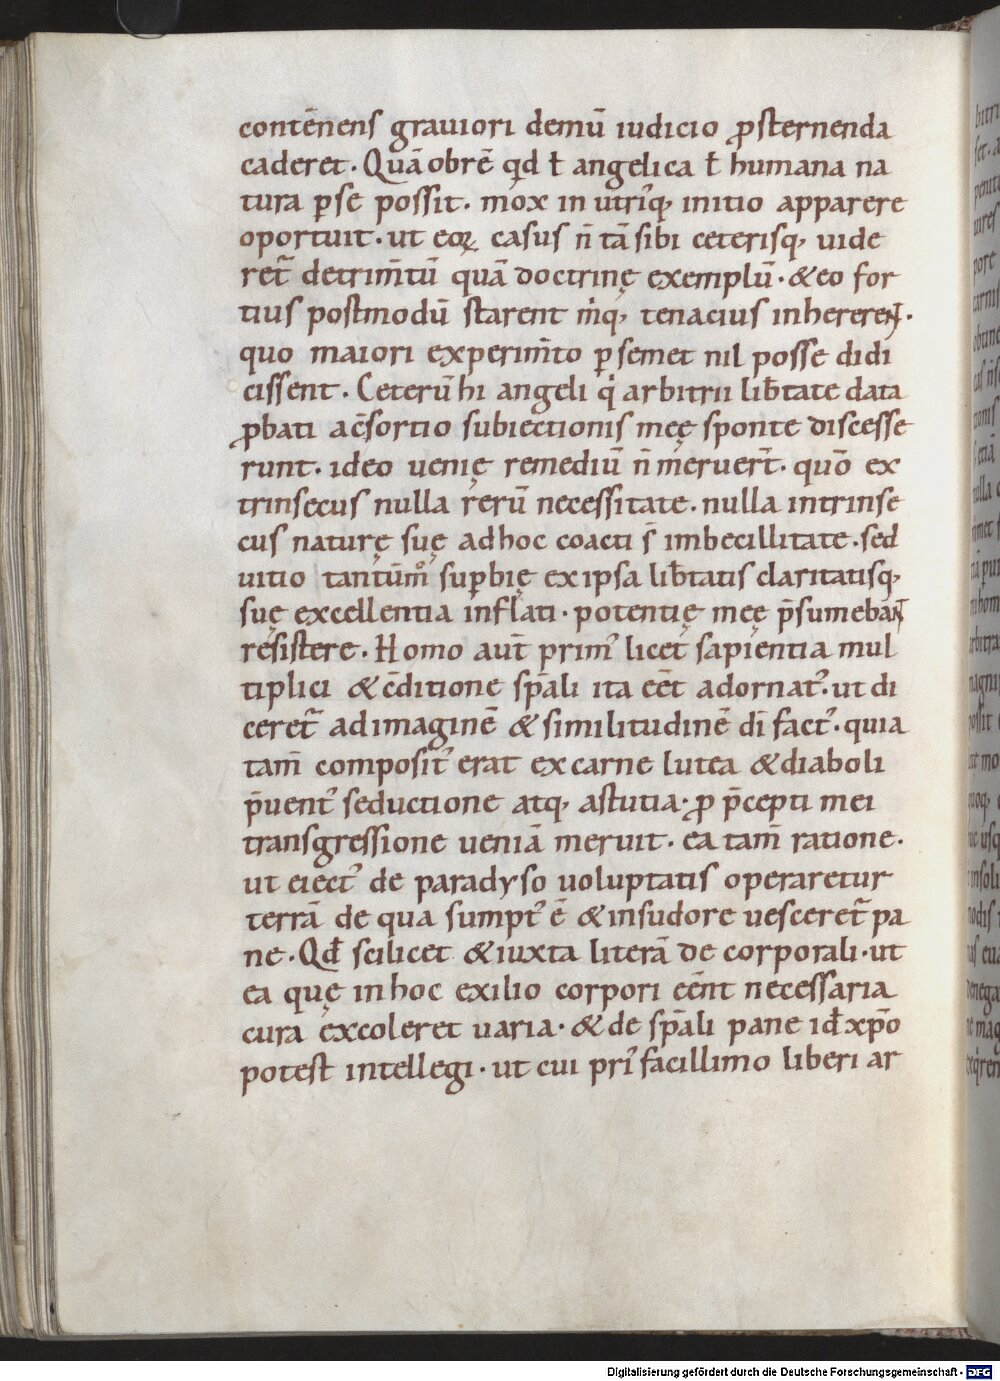 contēnens grauiori demū iudicio ꝓsternenda
caderet · Quā obrē qd ł angelica ł humana na
tura ꝑse possit · mox in utriꝗ; initio apparere
oportuit · ut eoꝝ casus n̄ tā sibi ceterisq; uide
ret᷑ detrim̄tū quā doctrinę exemplū · & eo for
tius postmodū starent m̍q; tenacius inhererent ·
quo maiori experim̄to ꝑ semet nil posse didi
cissent · Ceterū hi angeli q̍ arbitrii lib̄tate data
ꝓbati ac̄sortio subiectionis meę sponte discesse
runt · ideo uenię remediū n̄ meruer̄t · quō ex
trinsecus nulla rerū necessitate · nulla intrinse
cus naturę suę adhoc coacti s̄ imbecillitate · sed
uitio tantūm̊ suꝑbię ex ipsa lib̄tatis claritatisq;
suę excellentia inflati · potentię meę p̄sumebant
resistere · Homo aut̄ primꝰ licet sapientia mul
tiplici & c̄ditione sp̄ali ita eēt adornatꝰ · ut di
ceret᷑ ad imaginē & similitudinē dī factꝰ · quia
tam̄ compositꝰ erat ex carne lutea & diaboli
p̄uentꝰ seductione atq; astutia · ꝓ p̄cepti mei
transgressione ueniā meruit · ea tam̄ ratione ·
ut eiectꝰ de paradyso uoluptatis operaretur
terrā de qua sumptꝰ ē & insudore uesceret᷑ pa
ne · Qđ scilicet & iuxta literā de corporali · ut
ea quę in hoc exilio corpori eēnt necessaria
cura excoleret uaria · & de sp̄ali pane id ē xp̄o
potest intellegi · ut cui priꝰ facillimo liberi ar
Digitalisierung gefördert durch die Deutsche Forschungsgemeinschaft - DFG